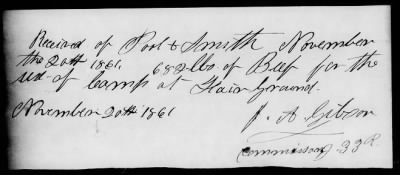 Received of Pool & Smyth November
the 20th 1861. 682 lbs. of Beef for the
use of Camp at Fair Ground.
November 20th 1861
J. A. Gibson
Commissary 33 R.